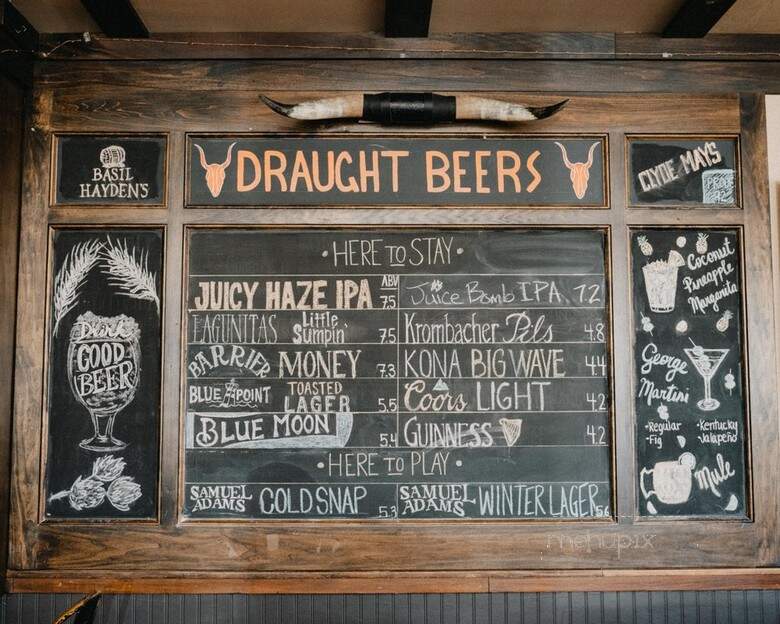 BASIL
HAYDEN'S
DRAUGHT BEERS
CLYDE MAY'S
HERE TO STAY
ABV
JUICY HAZE IPA 7.5
Juice Bomb IPA 7.2
LAGUNITAS Little Sumpin' 7.5
Krombacher Pils 4.8
BARRIER MONEY 7.3
KONA BIG WAVE 4.4
BLUE POINT TOASTED LAGER 5.5
Coors LIGHT 4.2
BLUE MOON 5.4
GUINNESS 4.2
HERE TO PLAY
SAMUEL ADAMS COLD SNAP 5.3
SAMUEL ADAMS WINTER LAGER 5.6
Drink
GOOD
BEER
Coconut
Pineapple
Margarita
George
Martini
•Regular
•Fig
•Kentucky
Jalapeño
Mule
menupix